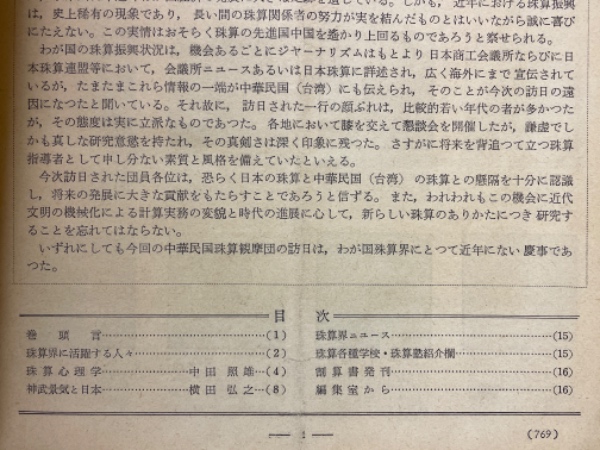 は，史上稀有の現象であり，長い間の珠算関係者の努力が実を結んだものとはいいながら誠に喜び
にたえない。この実情はおそらく珠算の先進国中国を遙かり上回るものであろうと察せられる。
わが国の珠算振興状況は，機会あるごとにジャーナリズムはもとより日本商工会議所ならびに日
本珠算連盟等において，会議所ニュースあるいは日本珠算に詳述され，広く海外にまで宣伝されて
いるが，たまたまこれら情報の一端が中華民国（台湾）にも伝えられ，そのことが今次の訪日の遠
因になつたと聞いている。それ故に，訪日された一行の顔ぶれは，比較的若い年代の者が多かつた
が，その態度は実に立派なものであつた。各地において膝を交えて懇談会を開催したが，謙虚でし
かも真しな研究意慾を持たれ，その真剣さは深く印象に残つた。さすがに将来を背追つて立つ珠算
指導者として申し分ない素質と風格を備えていたといえる。
今次訪日された団員各位は，恐らく日本の珠算と中華民国（台湾）の珠算との懸隔を十分に認識
し，将来の発展に大きな貢献をもたらすことであろうと信ずる。また，われわれもこの機会に近代
文明の機械化による計算実務の変貌と時代の進展に心して，新らしい珠算のありかたにつき研究す
ることを忘れてはならない。
いずれにしても今回の中華民国珠算観摩団の訪日は，わが国珠算界にとつて近年にない慶事であ
つた。
目次
巻頭言……………………………(1)
珠算界に活躍する人々……………………(2)
珠算心理学………………中田照雄…(4)
神武景気と日本…………横田弘之…(8)
珠算界ニュース……………………………(15)
珠算各種学校・珠算塾紹介欄……………(15)
割算書発刊…………………………(16)
編集室から…………………………(16)
(769)